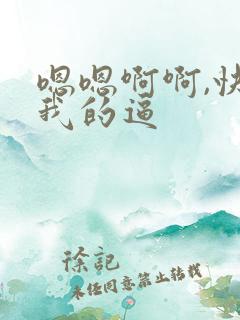 嗯嗯啊啊,快
我的逼
徐記
未经同意禁止转载